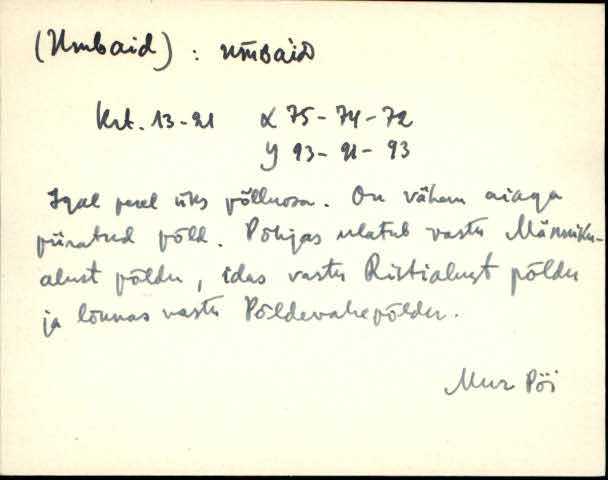 (Umbaid) : UMBAID
Krt. 13-21 X 75-74-72
Y 93-91-93
Igal perel üks põlluosa. On vähem aiaga
piiratud põld. Põhjas ulatub vastu Männiku-
alust põldu, idas vastu Ristialust põldu
ja lõunas vastu Põldevahepõldu.
Mus Pöi